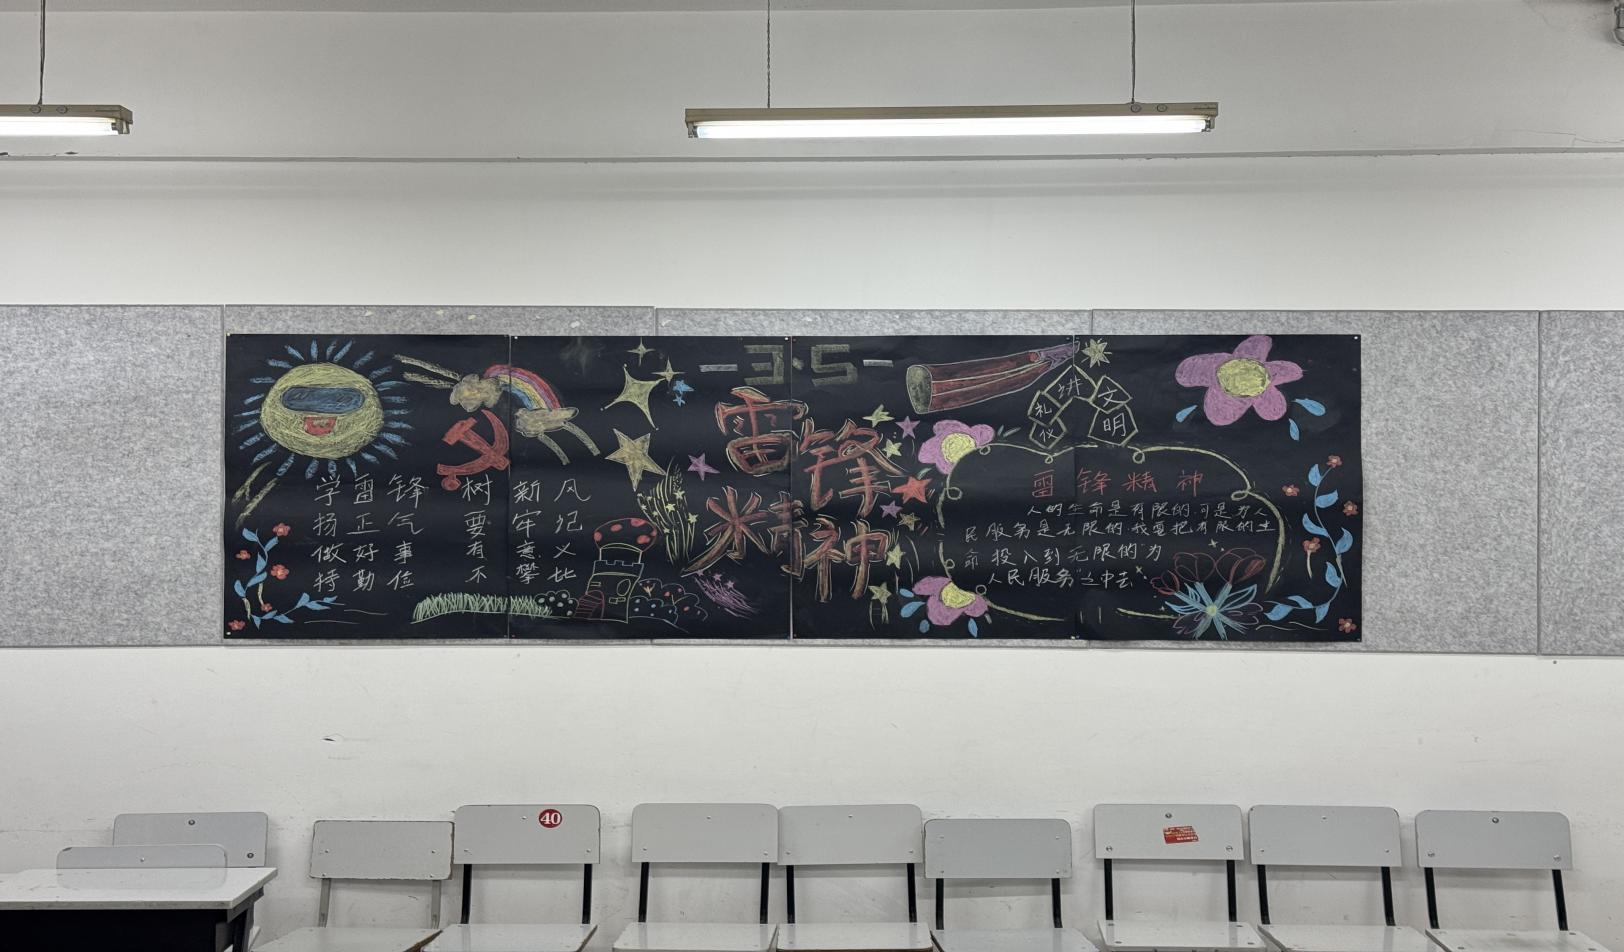 -3·5-
雷锋
精神
学雷锋 树新风
扬正气 要牢记
做好事 有意义
持勤俭 不攀比
讲文明
礼仪
雷锋精神
人的生命是有限的,可是为人
民服务是无限的,我要把有限的生
命投入到无限的“为
人民服务”之中去
40